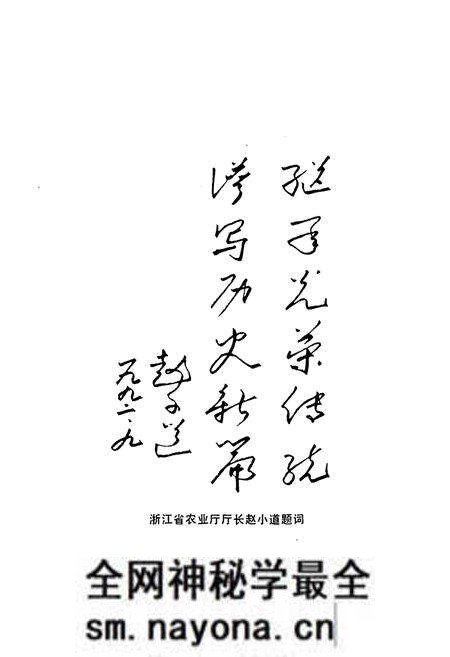 继承光荣传统
谱写历史新篇
赵小道
一九九二·九
浙江省农业厅厅长赵小道题词
全网神秘学最全
sm.nayona.cn